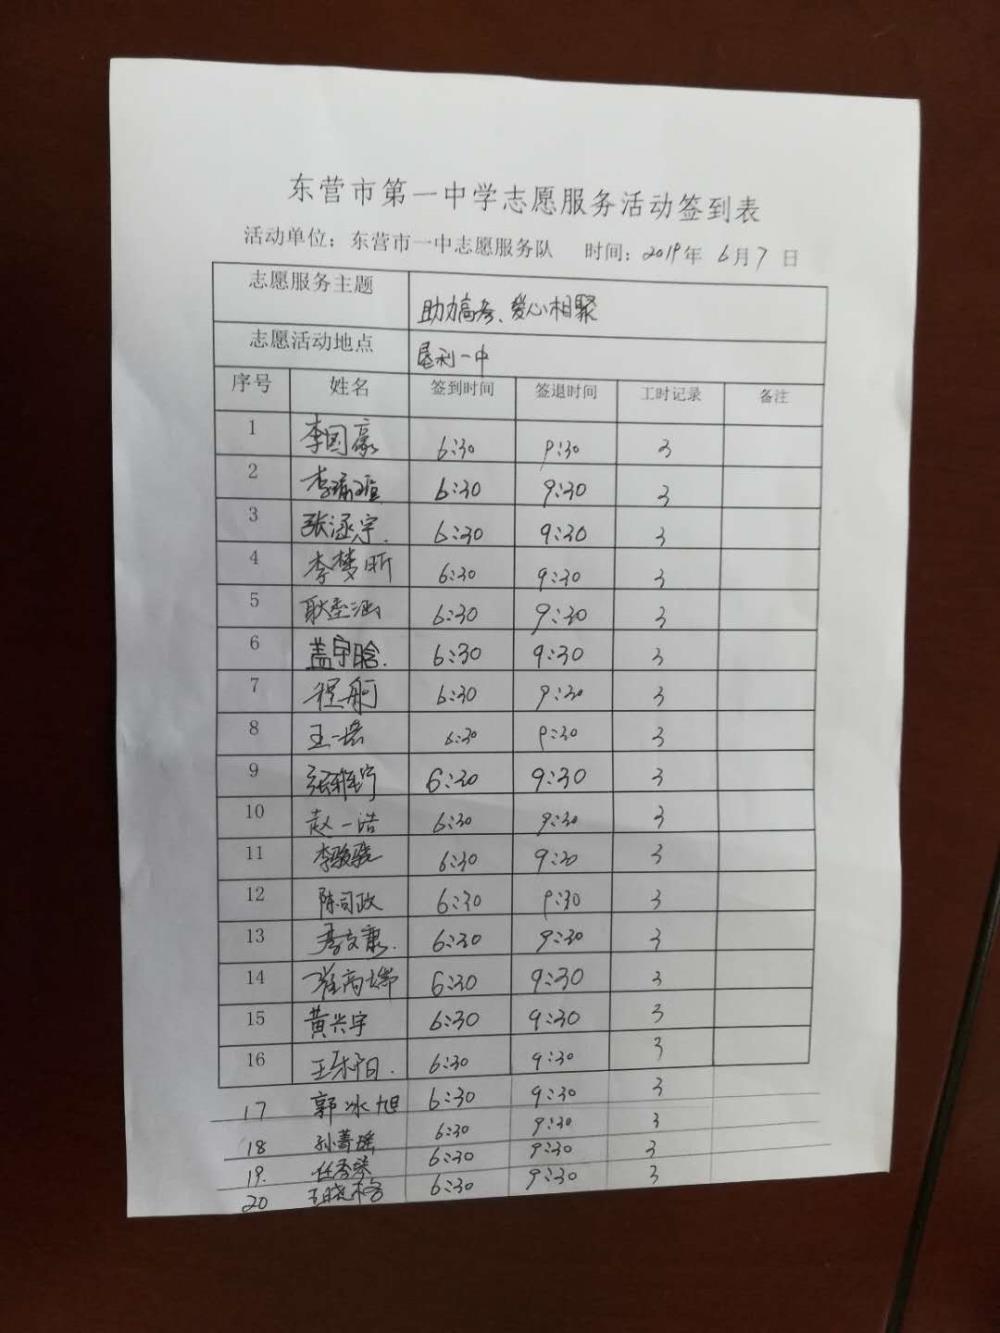 东营市第一中学志愿服务活动签到表
活动单位：东营市一中志愿服务队 时间：2019年 6月7日
志愿服务主题 助力高考、爱心相聚
志愿活动地点 垦利一中
序号 姓名 签到时间 签退时间 工时记录 备注
1 李国豪 6:30 9:30 3
2 6:30 9:30 3
3 张涵宇. 6:30 9:30 3
4 李梦昕 6:30 9:30 3
5 6:30 9:30 3
6 盖宇晗. 6:30 9:30 3
7 程舸 6:30 9:30 3
8 王一 6:30 9:30 3
9 张 6:30 9:30 3
10 赵一浩 6:30 9:30 3
11 李骏骁 6:30 9:30 3
12 陈司政 6:30 9:30 3
13 6:30 9:30 3
14 崔高 6:30 9:30 3
15 黄兴宇 6:30 9:30 3
16 王 阳. 6:30 9:30 3
17 郭冰旭 6:30 9:30 3
18 孙菁瑶 6:30 9:30 3
19. 任秀 6:30 9:30 3
20 王晓 6:30 9:30 3